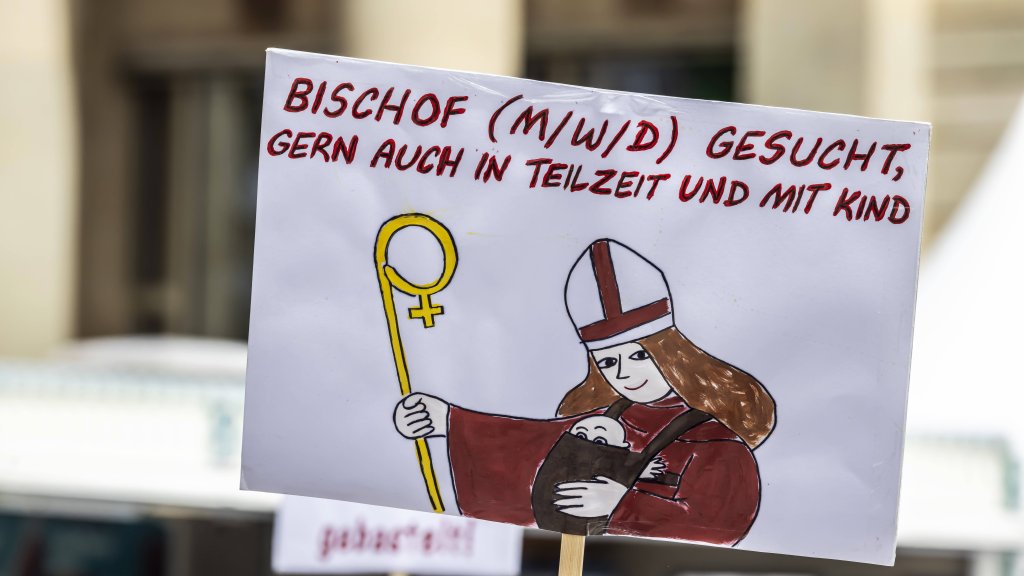 BISCHOF (M/W/D) GESUCHT,
GERN AUCH IN TEILZEIT UND MIT KIND